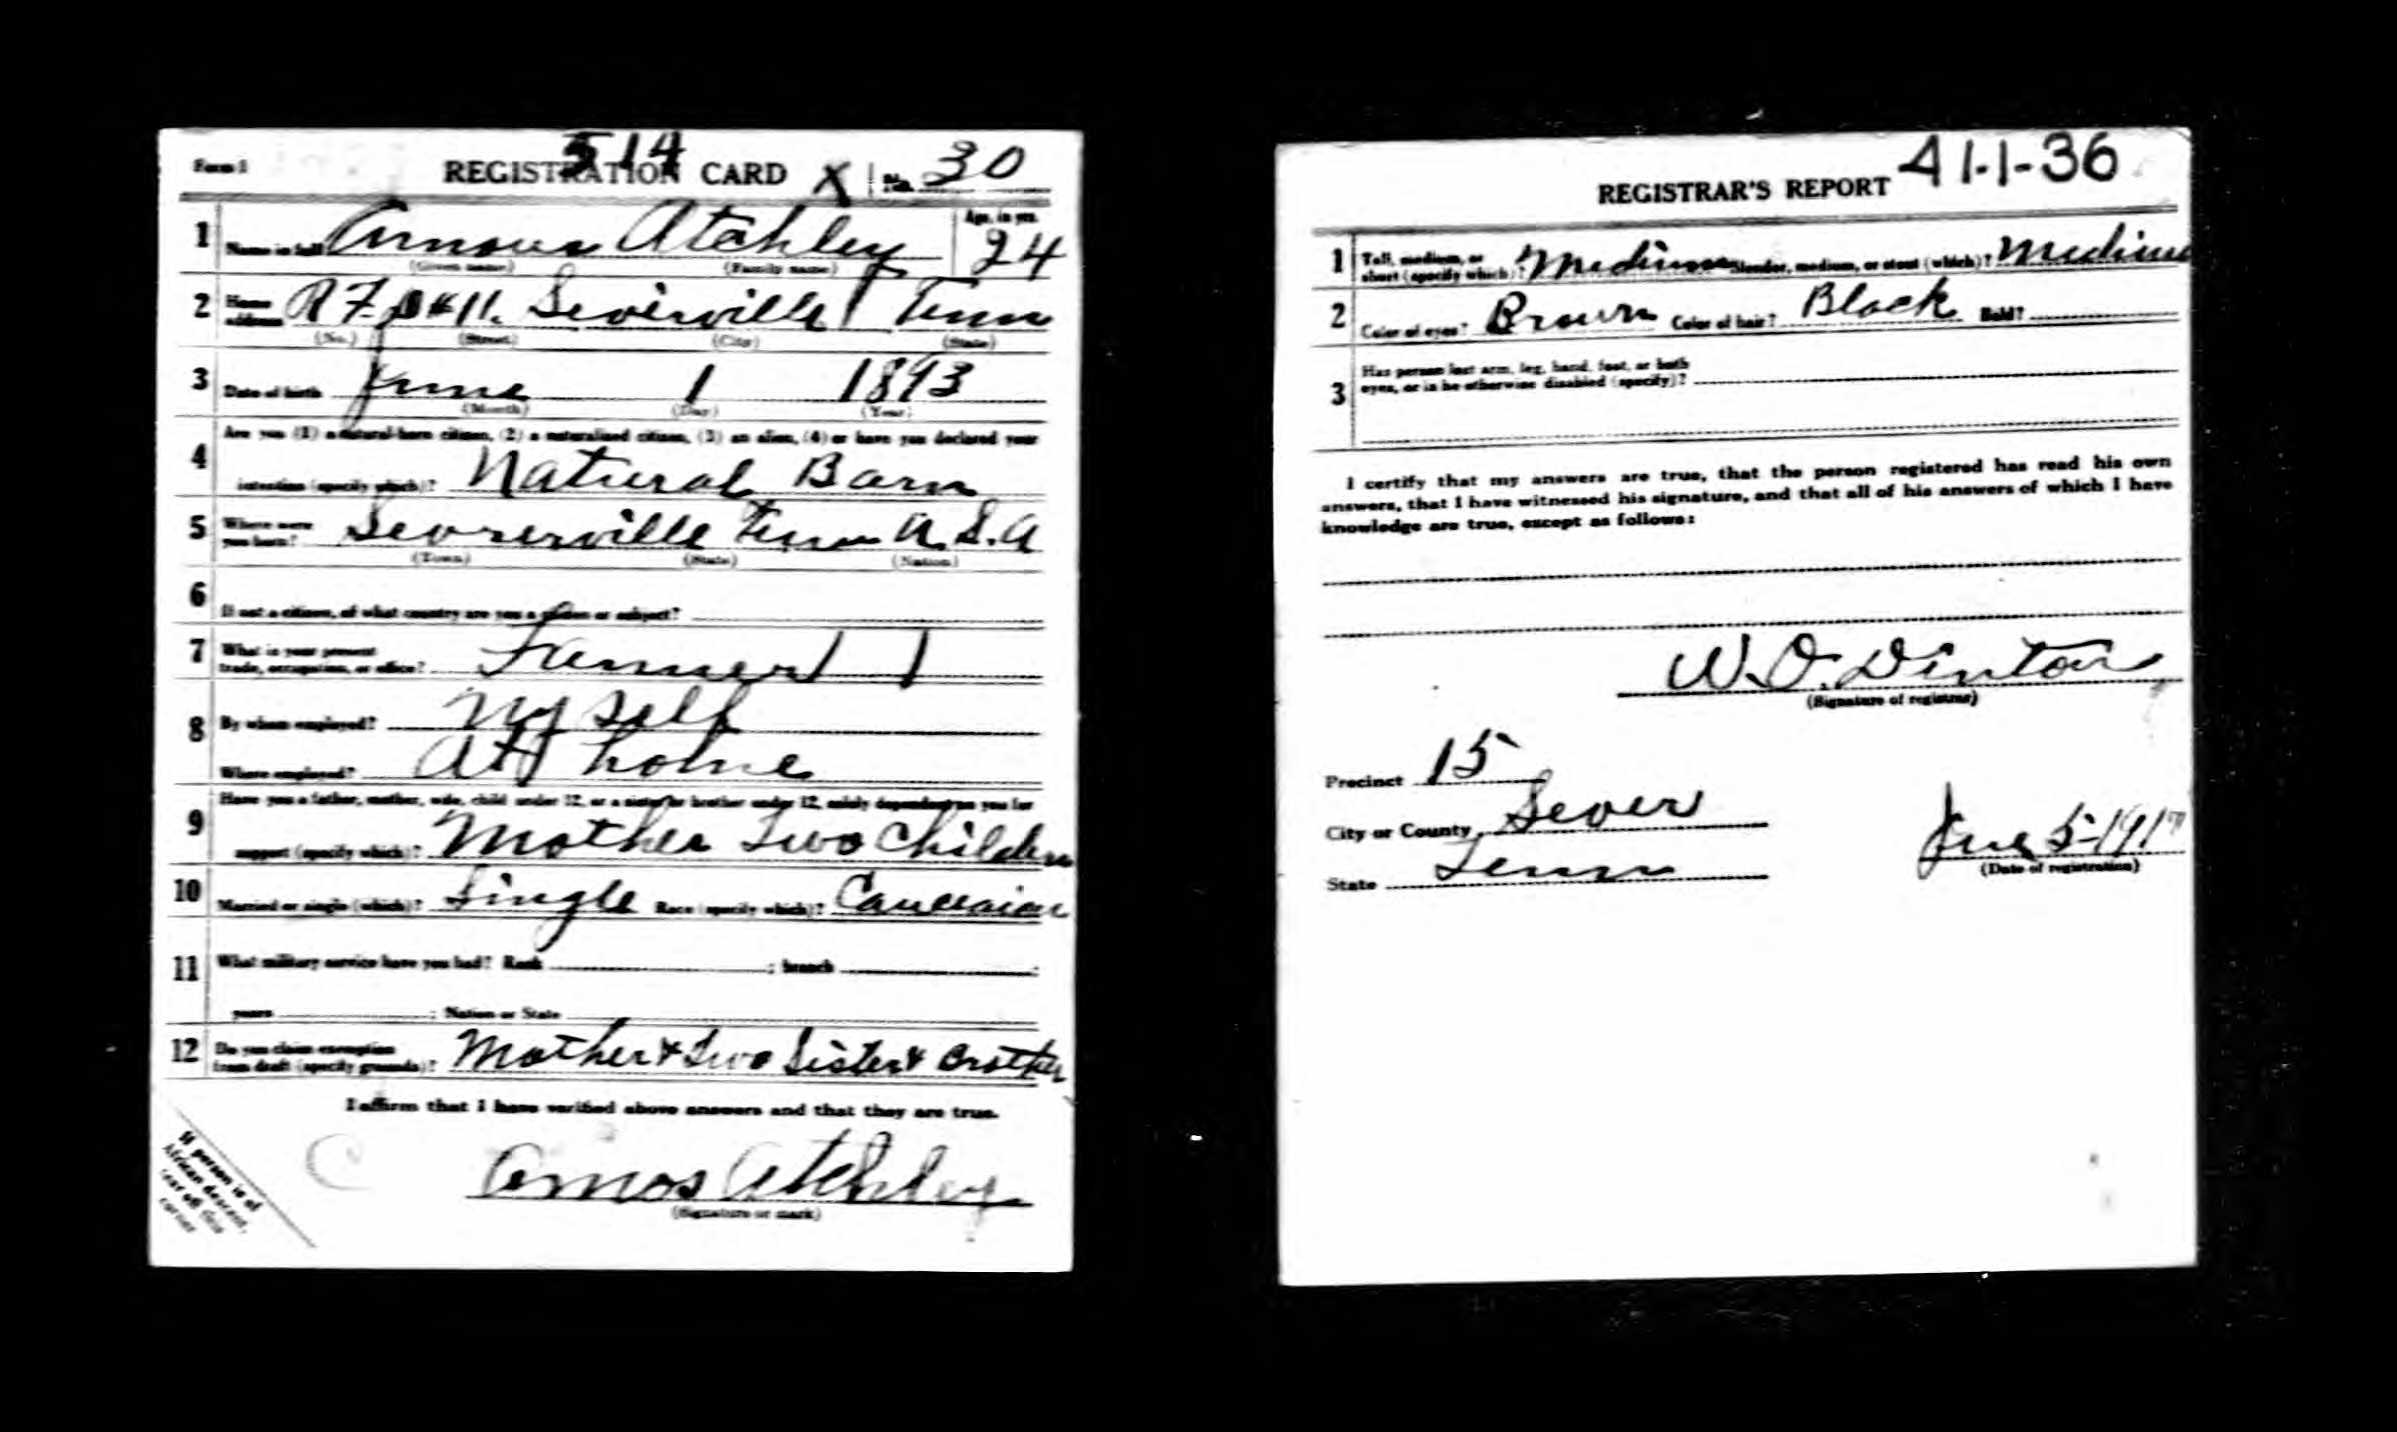 514
Form 1 REGISTRATION CARD X No. 30
1 Name in full Amous Atchley Age, in yrs. 24
(Given name) (Family name)
2 Home address R F. D # 11. Sevierville Tenn
(No.) (Street) (City) (State)
3 Date of birth June 1 1893
(Month) (Day) (Year)
4 Are you (1) a natural-born citizen, (2) a naturalized citizen, (3) an alien, (4) or have you declared your
intention (specify which)? Natural Barn
5 Where were you born? Sevrerville Tenn U.S.A
(Town) (State) (Nation)
6 If not a citizen, of what country are you a citizen or subject?
7 What is your present
trade, occupation, or office? Farmer
8 By whom employed? My self
Where employed? att home
9 Have you a father, mother, wife, child under 12, or a sister or brother under 12, solely dependent on you for
support (specify which)? Mother Two Childern
10 Married or single (which)? Single Race (specify which)? Caucaian
11 What military service have you had? Rank ; branch ;
years ; Nation or State
12 Do you claim exemption
from draft (specify grounds)? Mother & Two Sister & Brother
I affirm that I have verified above answers and that they are true.
Amos Atchley
(Signature or mark)
If person is of
African descent,
tear off this
corner
41-1-36
REGISTRAR'S REPORT
1 Tall, medium, or
short (specify which)? Medium Slender, medium, or stout (which)? Medium
2 Color of eyes? Brown Color of hair? Black Bald?
3 Has person lost arm, leg, hand, foot, or both
eyes, or is he otherwise disabled (specify)?
I certify that my answers are true, that the person registered has read his own
answers, that I have witnessed his signature, and that all of his answers of which I have
knowledge are true, except as follows:
W. O. Denton
(Signature of registrar)
Precinct 15
City or County Sever
State Tenn
June 5-1917
(Date of registration)